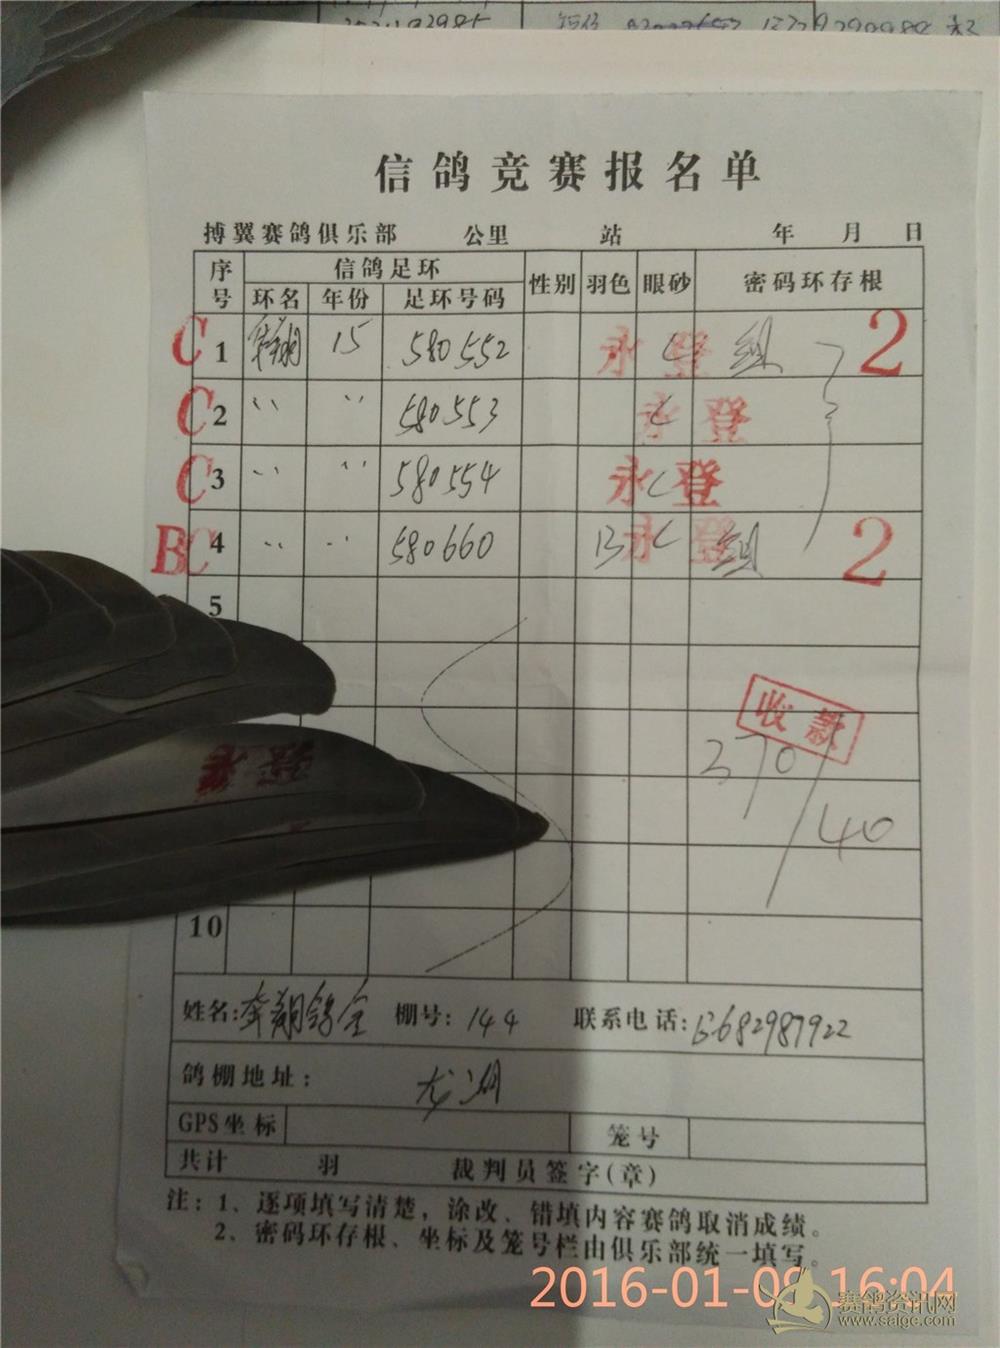 信鸽竞赛报名单
搏翼赛鸽俱乐部 公里 站 年 月 日
序号 信鸽足环 性别 羽色 眼砂 密码环存根
环名 年份 足环号码
C 1 15 580552 永登 C 组 2
C 2 〃 〃 580553 永登 C
C 3 〃 〃 580554 永登 C
BC 4 〃 〃 580660 B 永登 C 组 2
5
收款
370
140
10
姓名: 奔翔鸽舍 棚号: 144 联系电话: 13682987922
鸽棚地址: 龙湖
GPS坐标 笼号
共计 羽 裁判员签字(章)
注: 1、逐项填写清楚，涂改、错填内容赛鸽取消成绩。
2、密码环存根、坐标及笼号栏由俱乐部统一填写。
2016-01-09 16:04
赛鸽资讯网
www.saige.com